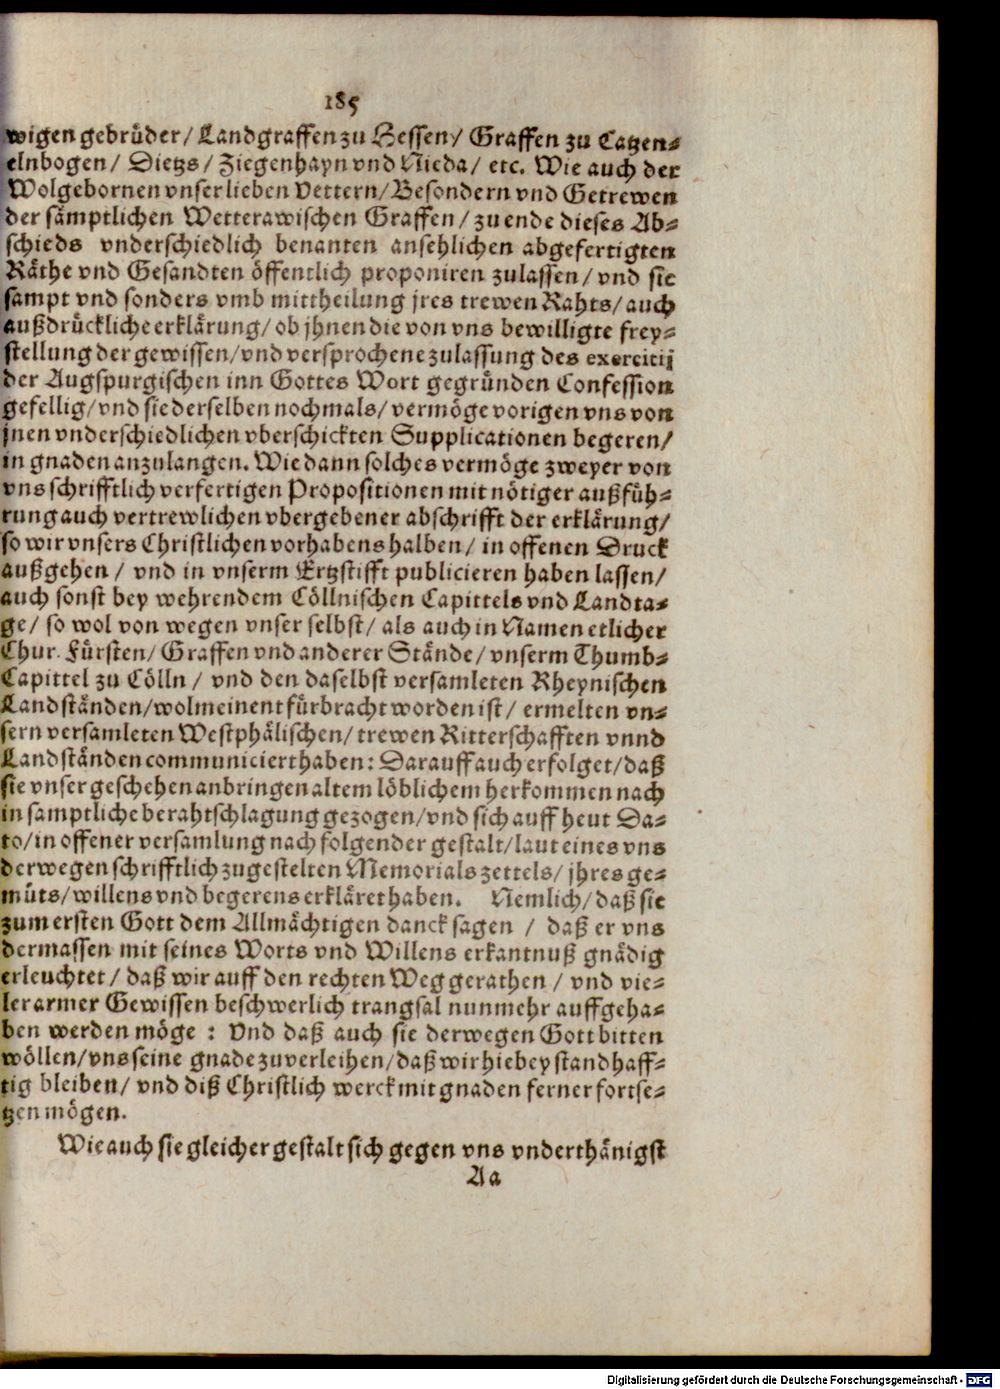 185
wigen gebrüder/ Landgraffen zu Hessen/ Graffen zu Catzen⸗
elnbogen/ Dietzs/ Ziegenhayn vnd Nieda/ etc. Wie auch der
Wolgebornen vnser lieben Vettern/ Besondern vnd Getrewen
der sämptlichen Wetterawischen Graffen/ zu ende dieses Ab⸗
schieds vnderschiedlich benanten ansehlichen abgefertigten
Räthe vnd Gesandten öffentlich proponiren zulassen/ vnd sie
sampt vnd sonders vmb mittheilung jres trewen Rahts/ auch
außdrückliche erklärung/ ob jhnen die von vns bewilligte frey⸗
stellung der gewissen/ vnd versprochene zulassung des exercitij
der Augspurgischen inn Gottes Wort gegründen Confession
gefellig/ vnd sie derselben nochmals/ vermöge vorigen vns von
jnen vnderschiedlichen vberschickten Supplicationen begeren/
in gnaden anzulangen. Wie dann solches vermöge zweyer von
vns schrifftlich verfertigen Propositionen mit nötiger außfüh⸗
rung auch vertrewlichen vbergebener abschrifft der erklärung/
so wir vnsers Christlichen vorhabens halben/ in offenen Druck
außgehen / vnd in vnserm Ertzstifft publicieren haben lassen/
auch sonst bey wehrendem Cöllnischen Capittels vnd Landta⸗
ge/ so wol von wegen vnser selbst/ als auch in Namen etlicher
Chur. Fürsten/ Graffen vnd anderer Stände/ vnserm Thumb⸗
Capittel zu Cölln / vnd den daselbst versamleten Rheynischen
Landständen/ wolmeinent fürbracht worden ist/ ermelten vn⸗
sern versamleten Westphälischen/ trewen Ritterschafften vnnd
Landständen communiciert haben: Darauff auch erfolget/ daß
sie vnser geschehen anbringen altem löblichem herkommen nach
in samptliche berahtschlagung gezogen/ vnd sich auff heut Da⸗
to/ in offener versamlung nach folgender gestalt/ laut eines vns
derwegen schrifftlich zugestelten Memorials zettels/ jhres ge⸗
müts/ willens vnd begerens erkläret haben. Nemlich/ daß sie
zum ersten Gott dem Allmächtigen danck sagen / daß er vns
dermassen mit seines Worts vnd Willens erkantnuß gnädig
erleuchtet/ daß wir auff den rechten Weg gerathen / vnd vie⸗
ler armer Gewissen beschwerlich trangsal nunmehr auffgeha⸗
ben werden möge : Vnd daß auch sie derwegen Gott bitten
wöllen/ vns seine gnade zuverleihen/ daß wir hiebey standhaff⸗
tig bleiben/ vnd diß Christlich werck mit gnaden ferner fortse⸗
tzen mögen.
Wie auch sie gleicher gestalt sich gegen vns vnderthänigst
Aa
Digitalisierung gefördert durch die Deutsche Forschungsgemeinschaft - DFG